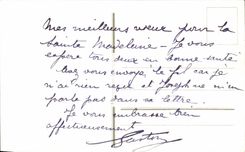 Mes meilleurs vœux pour la
Sainte Madeleine - Je vous
espère tous deux en bonne santé
Avez vous envoyé le fil car je
n'ai rien reçu et Joseph ne m'en
parle pas dans sa lettre.
Je vous embrasse bien
affectueusement
Gaston